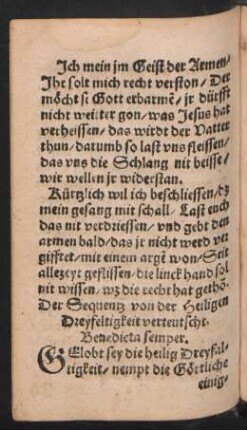 Ich mein jm Geist der Armen/
Jhr solt mich recht verston/ Der
möcht ſi Gott erbarmē/ jr dürfft
nicht weitter gon/ was Jesus hat
verheissen/ das wirdt der Vatter
thun/ darumb so last vns fleissen/
das vns die Schlang nit beisse/
wir wellen jr widerstan.
Kürtzlich wil ich beschliessen/ dz
mein gesang mit schall/ Last euch
das nit verdriessen/ vnd gebt den
armen bald/ das jr nicht werd ver
gifftet/ mit einem argē won/ Seit
allezeyt geflissen/ die linck hand sol
nit wissen/ wz die recht hat gethō.
Der Sequentz von der Heiligen
Dreyfeltigkeit verteutscht.
Benedicta semper.
GElobt sey die heilig Dreyfal-
tigkeit/ nempt die Göttliche
einig-